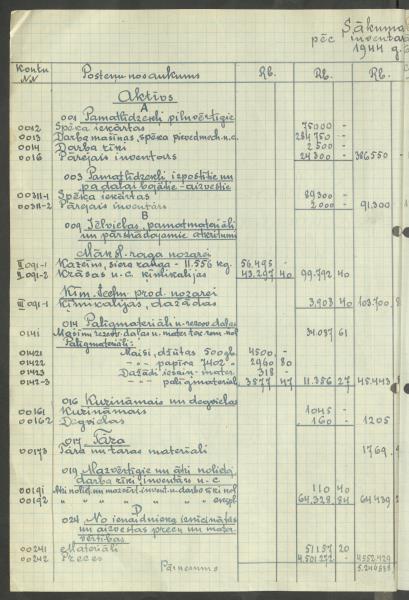 Sākuma
pēc inventar
1944 g.
Kontu NN Postenu nosaukums Rb. Rb. Rb.
Aktīvs
A
001 Pamatlīdzekļi pilnvērtīgie
0012 Spēka iekārtas 75000 -
0013 Darba mašīnas, spēka pievedmech. u.c. 284.750 -
0014 Darba rīki 2500 -
0016 Pārējais inventars 24.300 - 386550 -
003 Pamatlīdzekļi izpostītie un
pa daļai bojātie - aizvestie
00311-1 Spēka iekārtas 89300 -
00311-2 Pārējais inventārs 2.000 - 91.300
B
009 Izēlvielas, pamatmateriāli
un pārstrādājamie atkritumi
Māksl. raga nozarei
II 091-1 Kazeins, siera ražoša - 11.556 kg. 56.495 -
II 091-2 Krāsas u.c. ķimikalijas 43.297 40 99.792 40
Ķīm. techn. prod. nozarei
III 091-1 Ķimikalijas, dažādas 3,908 40 103.700,8
014 Palīgmateriāli u. rezerv. daļas
0141 Mašīnu rezerv. daļas 34.087 61
Palīgmateriāli:
01421 Maisi, džūtas 500 gb. 4500. -
01422 -"- papīra 7402 - 2960 80
01423 Dažādi iesaiņ. mater. 318 -
0142-3 -"- -"- palīgmateriāli 3577 47 11.356 27 45.443
016 Kurināmais un degvielas
00161 Kurināmais 1045 -
00162 Degvielas 160 - 1205
017 Tāra
00173 Tāra un taras materiāli 1769.
019 Mazvērtīgie un ātri nolieto.
darba rīki, inventārs u.c.
00191 Ātri noliet. un mazvērt. invent. u. darba rīki nol. 110 40
00192 " " " " " ekspl. 64.328 84 64.439
D
024 No ienaidnieka iznīcinātās
un aizvestās preču un maza
vērtības
00241 Materiāli 51157 20
00242 Preces 4.501.272 - 4552429
Pārnesums 5.246.588